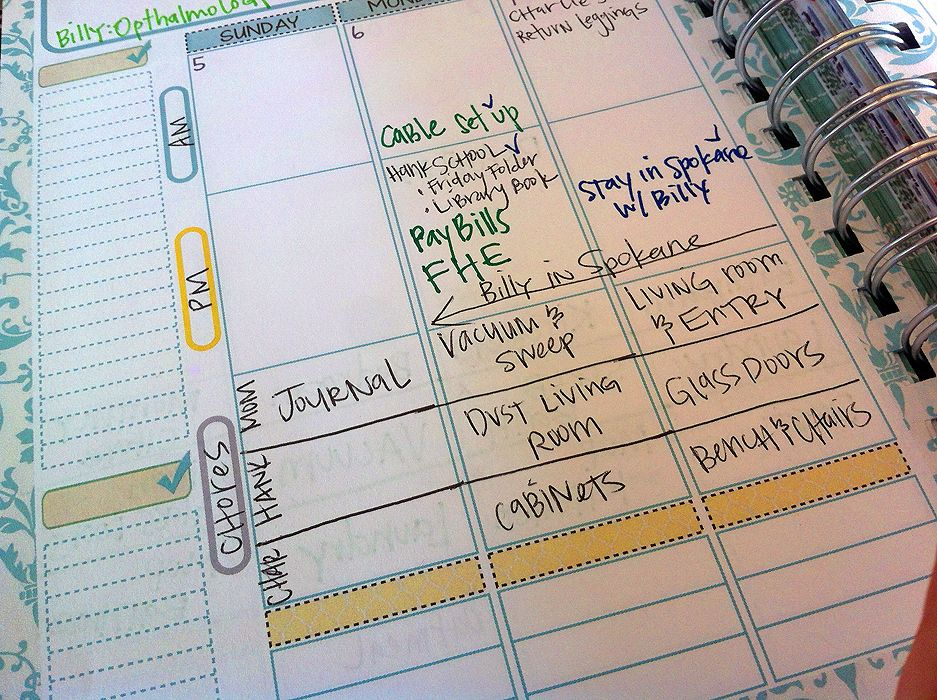 Billy: Opthalmology
SUNDAY
5
6
Return leggings
AM
Cable set up
Hank School
• Friday Folder
• Library Book
Pay Bills
FHE
Stay in Spokane
w/ Billy
PM
Billy in Spokane
CHORES
MOM
JOURNAL
Vacuum &
Sweep
LIVING ROOM
& ENTRY
HANK
DUST LIVING
ROOM
GLASS DOORS
CHAR
CABINETS
BENCH & CHAIRS